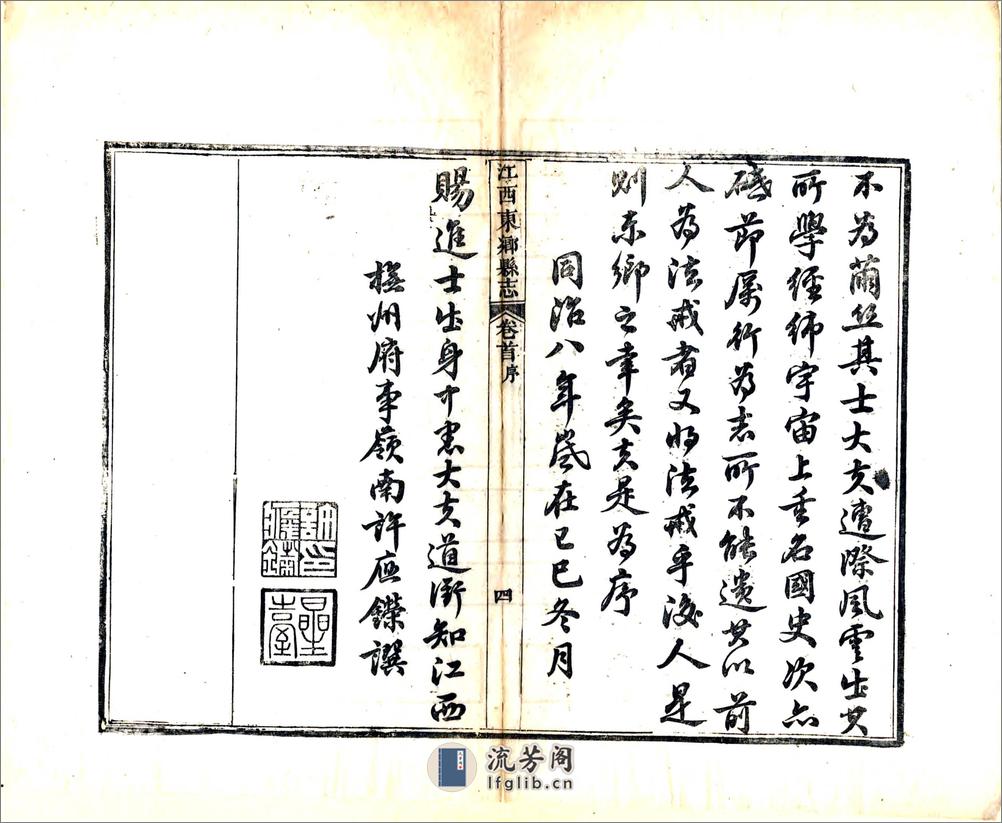 不為蘭絲其士大夫遭際風雲出其
所學經緯宇宙上垂名國史次亦
砥節厲行為志所不能遺其以前
人為法戒者又將法戒乎後人是
則東鄉之幸矣夫是為序
同治八年歲在己巳冬月
江西東鄉縣志
卷首序
四
賜進士出身中憲大夫道銜知江西
撫州府事嶺南許應鑅譔
許印應鑅
星臺
流芳阁
lfglib.cn